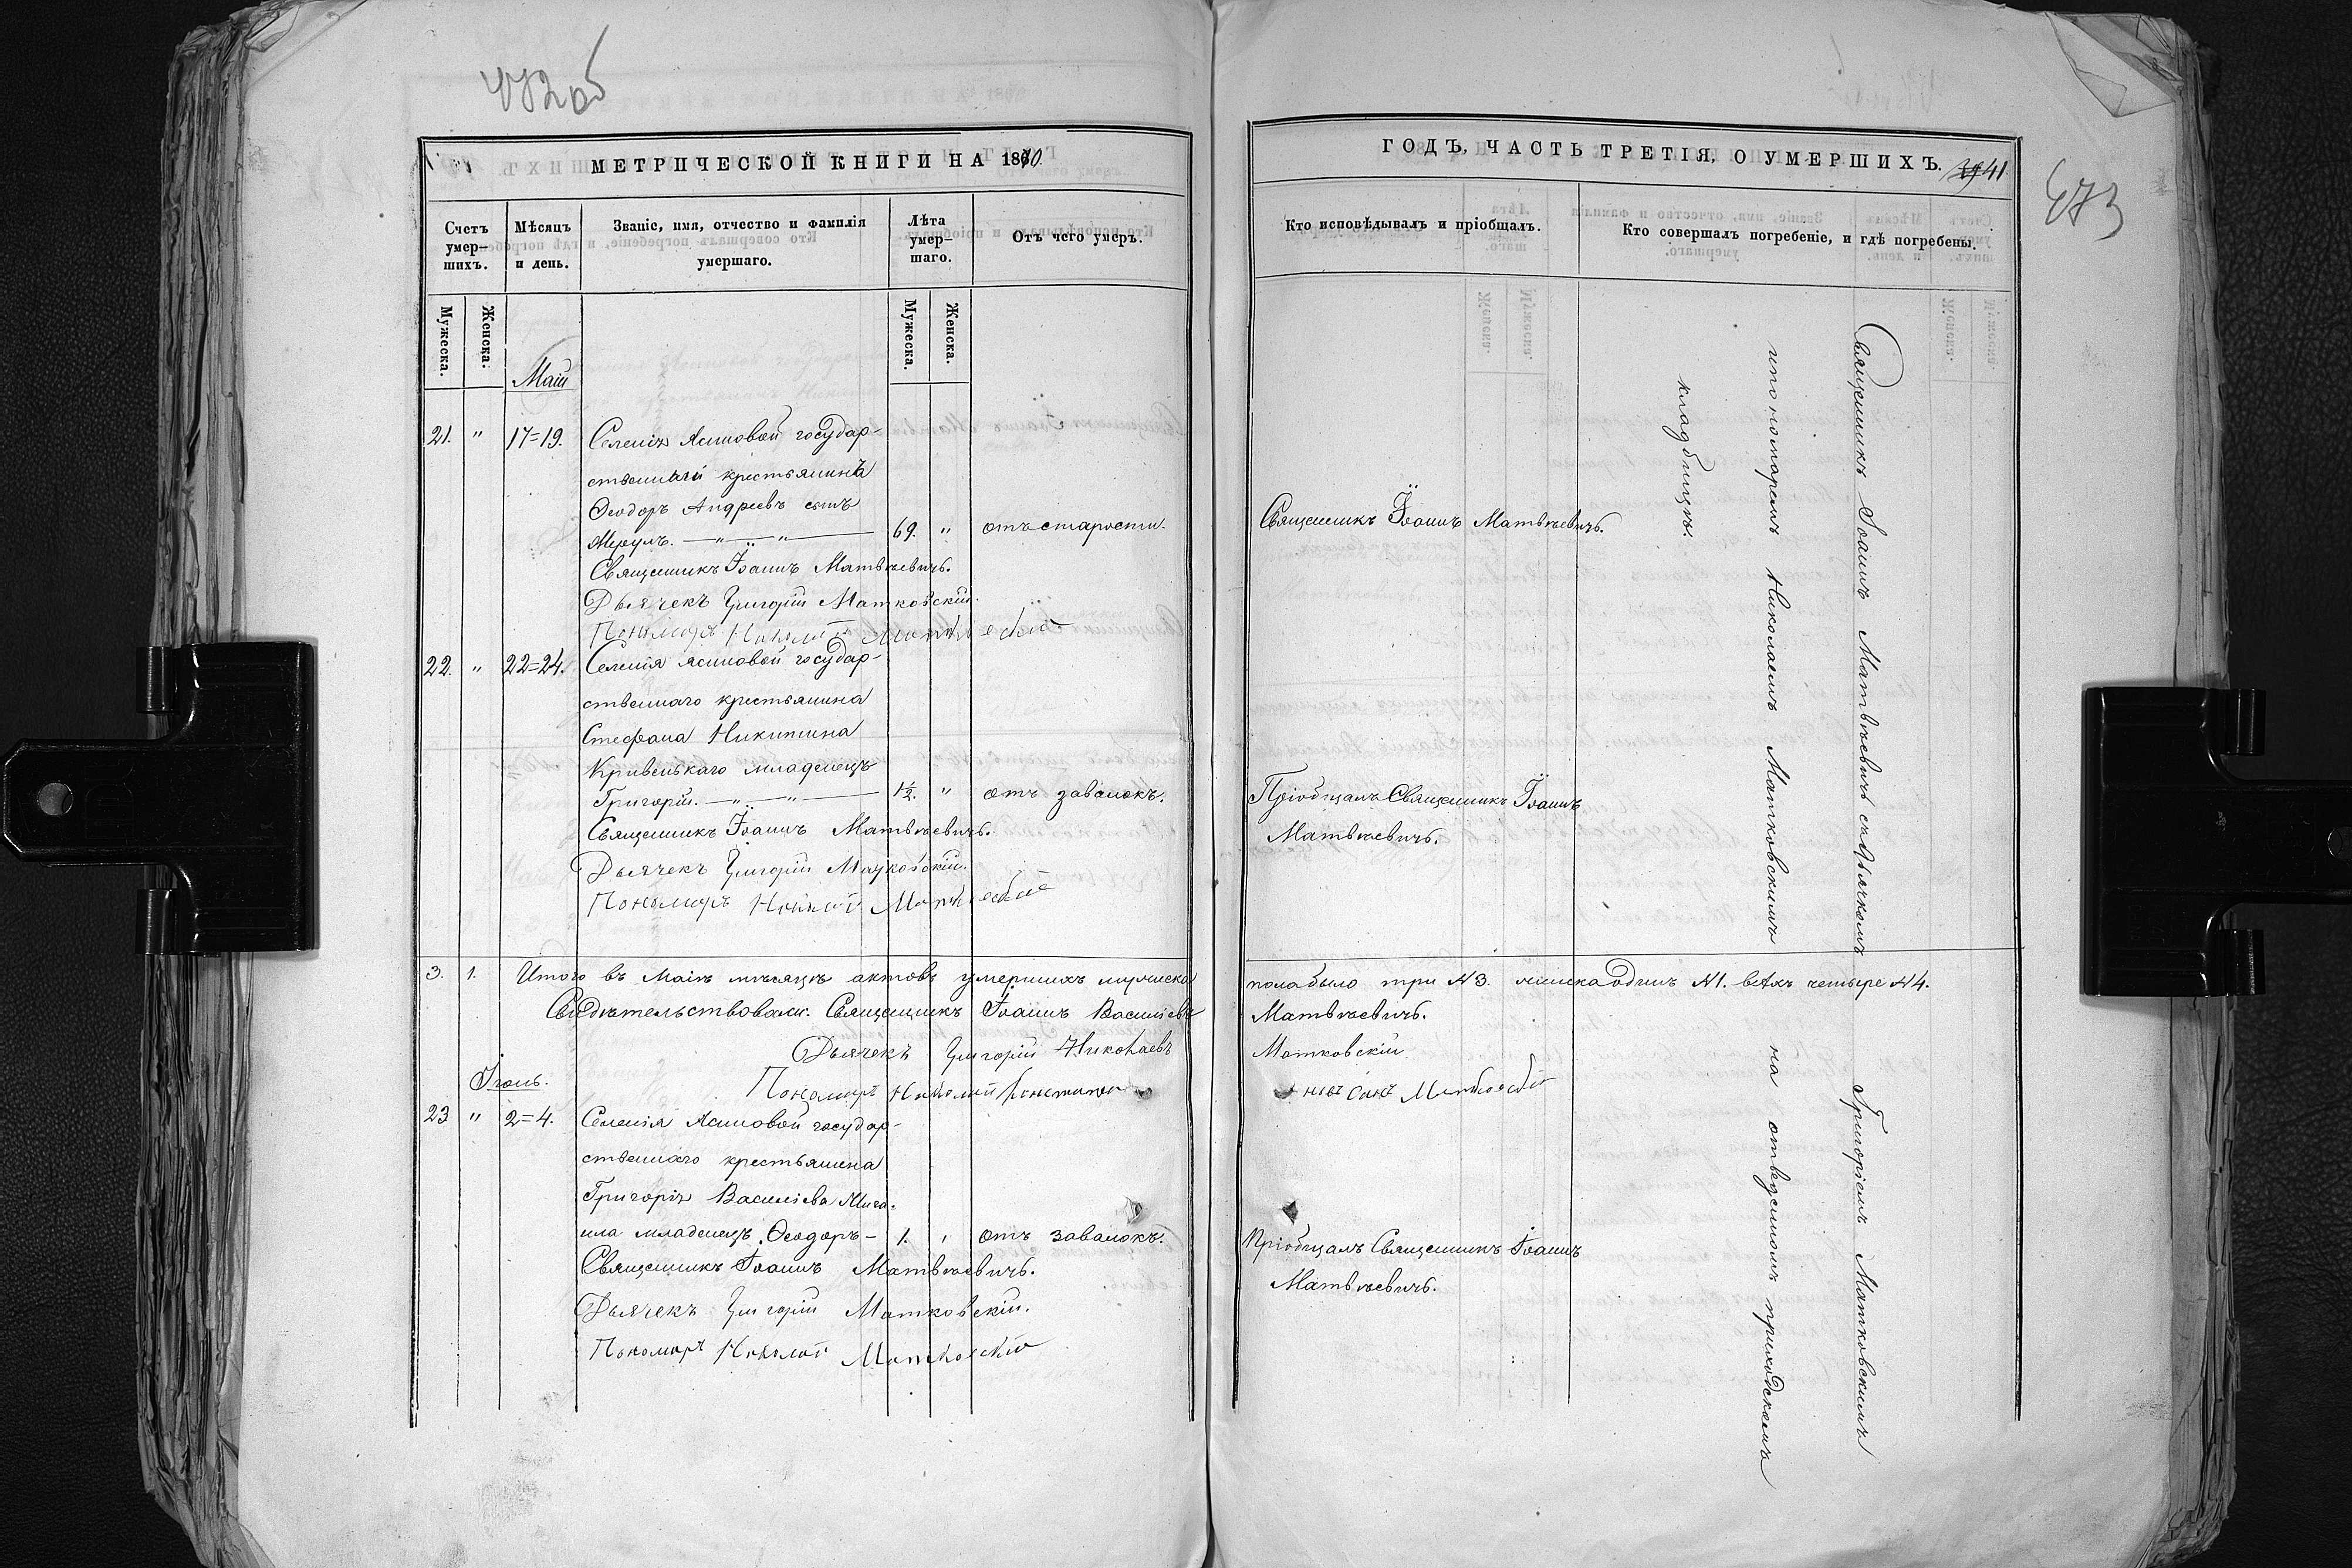 472об
МЕТРИЧЕСКОЙ КНИГИ НА 1870.
Счетъ умер-шихъ.
Мѣсяцъ и день.
Званіе, имя, отчество и фамилія умершаго.
Лѣта умер-шаго.
Отъ чего умеръ.
Мужеска.
Женска.
Мужеска.
Женска.
Маій
21. " 17=19. Селенія Ясиновой государ-
ственный крестьянинъ
Ѳеодоръ Андреевъ сынъ
69. " отъ старости.
Священникъ Іоаннъ Матвѣевичъ.
Дьячекъ Григорій Матковскій.
Пономарь Николай Матковскій
22. " 22=24. Селенія Ясиновой государ-
ственнаго крестьянина
Стефана Никитина
Кривенькаго младенецъ
Григорій. 1½. " отъ завалокъ.
Священникъ Іоаннъ Матвѣевичъ.
Дьячекъ Григорій Матковскій.
Пономарь Николай Матковскій
3. 1. Итого въ Маіѣ мѣсяцѣ актовъ умершихъ мужеска
Свидѣтельствовали: Священникъ Іоаннъ Василіевъ
Дьячекъ Григорій Николаевъ
Пономарь Николай Константи
Іюнь.
23 " 2=4. Селенія Ясиновой государ-
ственнаго крестьянина
Григорія Василіева
младенецъ Ѳеодоръ - 1. " отъ завалокъ.
Священникъ Іоаннъ Матвѣевичъ.
Дьячекъ Григорій Матковскій.
Пономарь Николай Матковскій
ГОДЪ, ЧАСТЬ ТРЕТІЯ, О УМЕРШИХЪ. 41
473
Кто исповѣдывалъ и пріобщалъ.
Кто совершалъ погребеніе, и гдѣ погребены.
Священникъ Іоаннъ Матвѣевичъ.
Пріобщалъ Священникъ Іоаннъ
Матвѣевичъ.
пола было три №3. женска одинъ №1. всѣхъ четыре №4.
Матвѣевичъ.
Матковскій
новъ сынъ Матковскій
Пріобщалъ Священникъ Іоаннъ
Матвѣевичъ.
Священникъ Іоаннъ Матвѣевичъ съ Дьячкомъ Григоріемъ Матковскимъ
и пономаремъ Николаемъ Матковскимъ на отводимомъ приходскомъ
кладбищѣ.